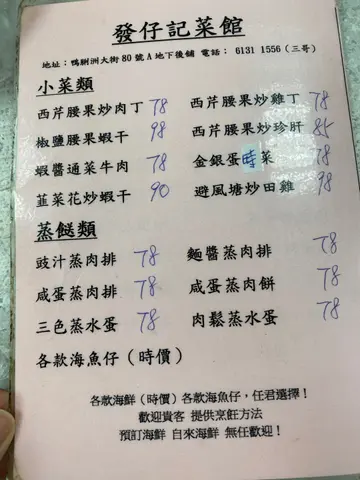 發仔記菜館
地址：鴨脷洲大街80號A地下後舖 電話： 6131 1556（三哥）
小菜類
西芹腰果炒肉丁 78 西芹腰果炒雞丁 78
椒鹽腰果蝦干 98 西芹腰果炒珍肝 85
蝦醬通菜牛肉 78 金銀蛋時菜 78
韮菜花炒蝦干 90 避風塘炒田雞 98
蒸餸類
豉汁蒸肉排 78 麵醬蒸肉排 78
咸蛋蒸肉排 78 咸蛋蒸肉餅 78
三色蒸水蛋 78 肉鬆蒸水蛋 78
各款海魚仔（時價）
各款海鮮（時價）各款海魚仔，任君選擇！
歡迎貴客 提供烹飪方法
預訂海鮮 自來海鮮 無任歡迎！